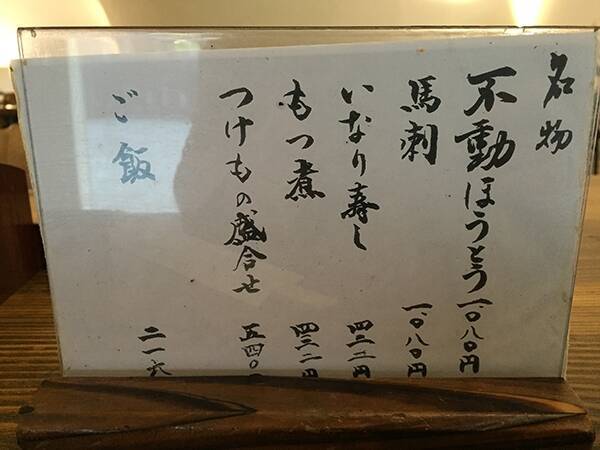 名物
不動ほうとう 一、〇八〇円
馬刺 一、〇八〇円
いなり寿し 四三二円
もつ煮 四三二円
つけもの盛合せ 五四〇
ご飯 二一六